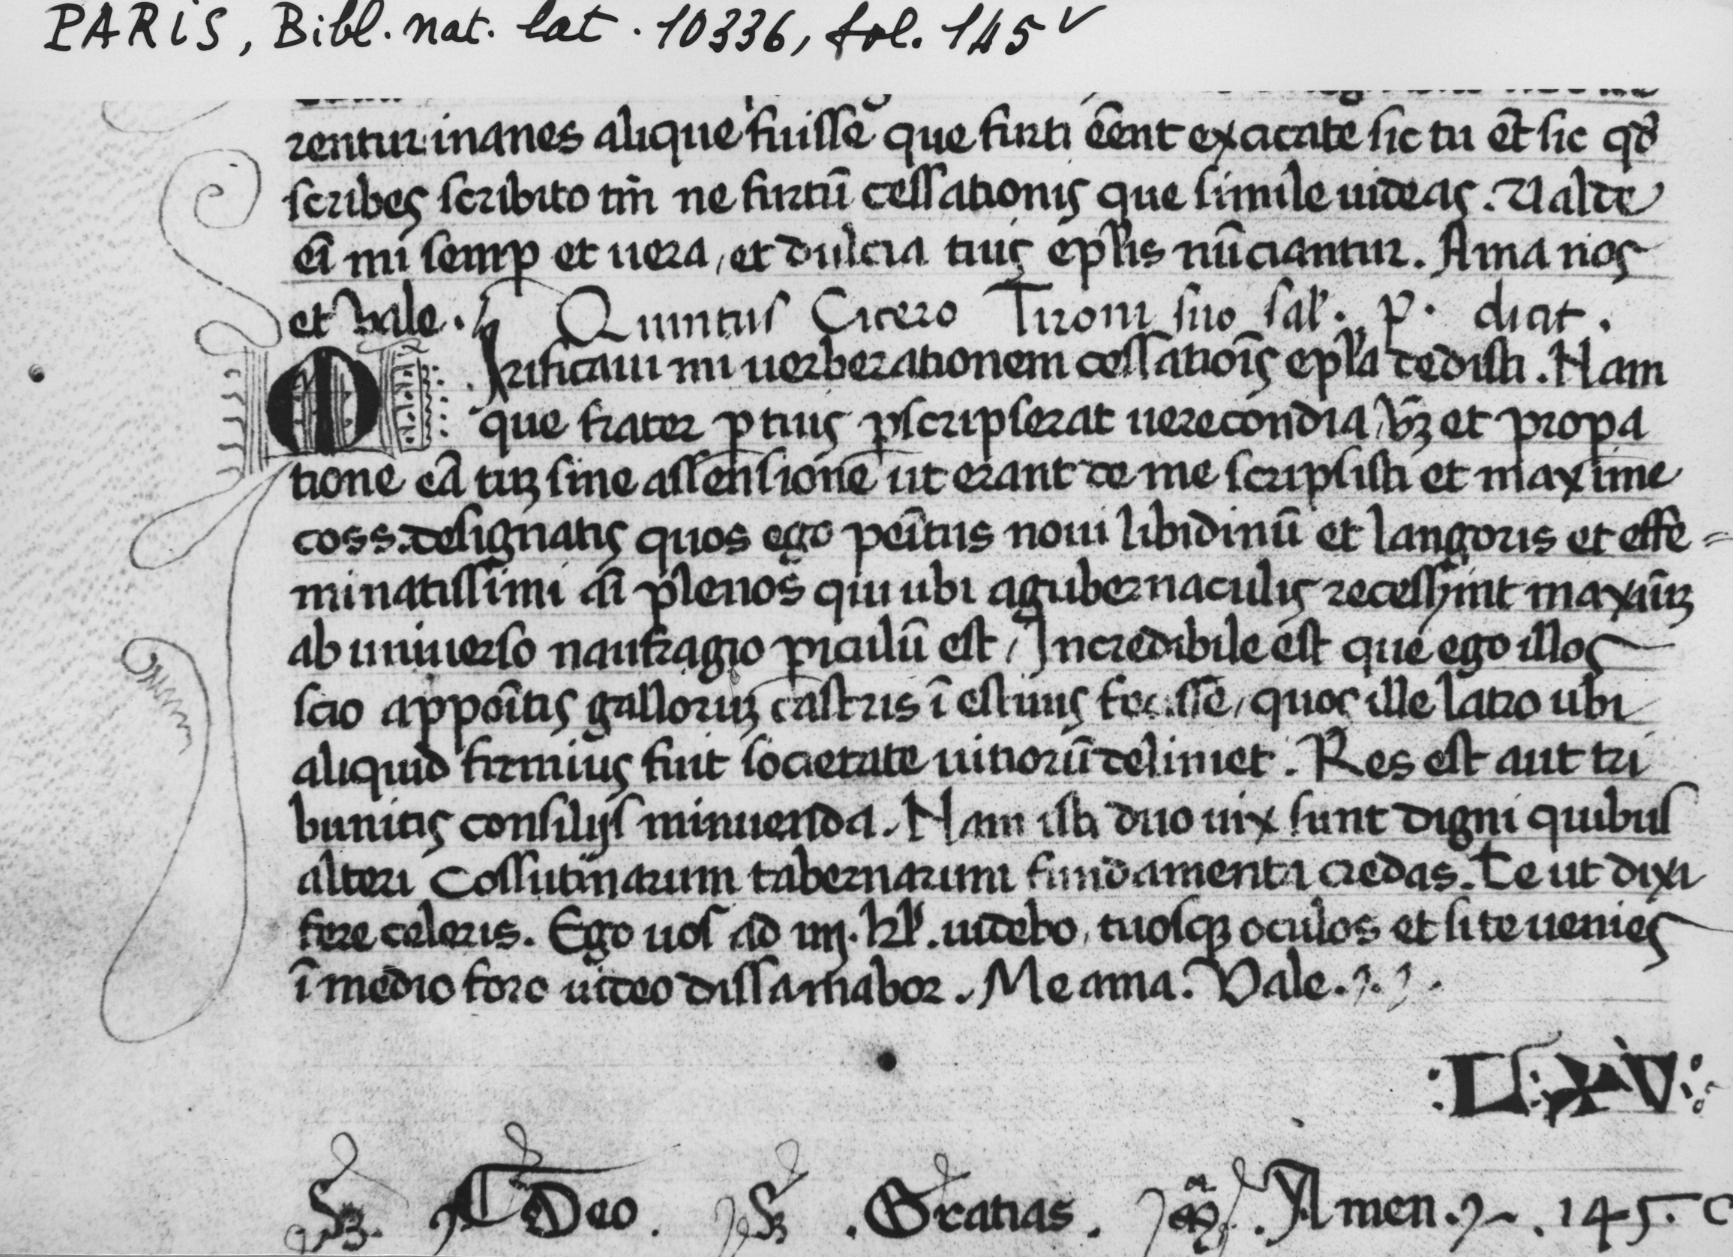 PARIS, Bibl. nat. lat. 10336, fol. 145v
rentur inanes alique fuisse que furti eēnt excitate sic tu et̄ sic qd̄
scribes scribito tm̄ ne furtū cessationis que simile uideas. Ualde
ei̅ mi semp et uera, et dulcia tuis ep̅lis nūciantur. Ama nos
et vale. Quintus Cicero Tironi suo sal'. p. dicit.
Mirificam mi uerberationem cessatiōis ep̅la dedisti. Nam
que frater p̱ tius p̱scripserat uerecondia, vꝫ et propa
tione eā tuꝫ sine assensione ut erant de me scripsisti et maxime
coss. designatis quos ego pei̅tus noui libidinū et langoris et effe=
minatissimi ai̅ plenos qui ubi agubernaculis recess̄int maximꝫ
ab uniuerso naufragio p̱iculū est, Incredibile est que ego illos
scio appoi̅tis galloruꝫ castris ī estiuis quos ille latro ubi
aliquid firmius fuit societate uitiorū deliniet. Res est aut tri
bunitis consilijs minuenda. Nam isti duo uix sunt digni quibus
alteri Cossutinarum tabernarum fundamenta credas. Te ut dixi
fere celeris. Ego uos ad iiij. kl'. uidebo, tuosqꝫ oculos et si te uenies
ī medio foro uideo dissamabor. Me ama. Vale.
Deo. Gratias. Amen. 145